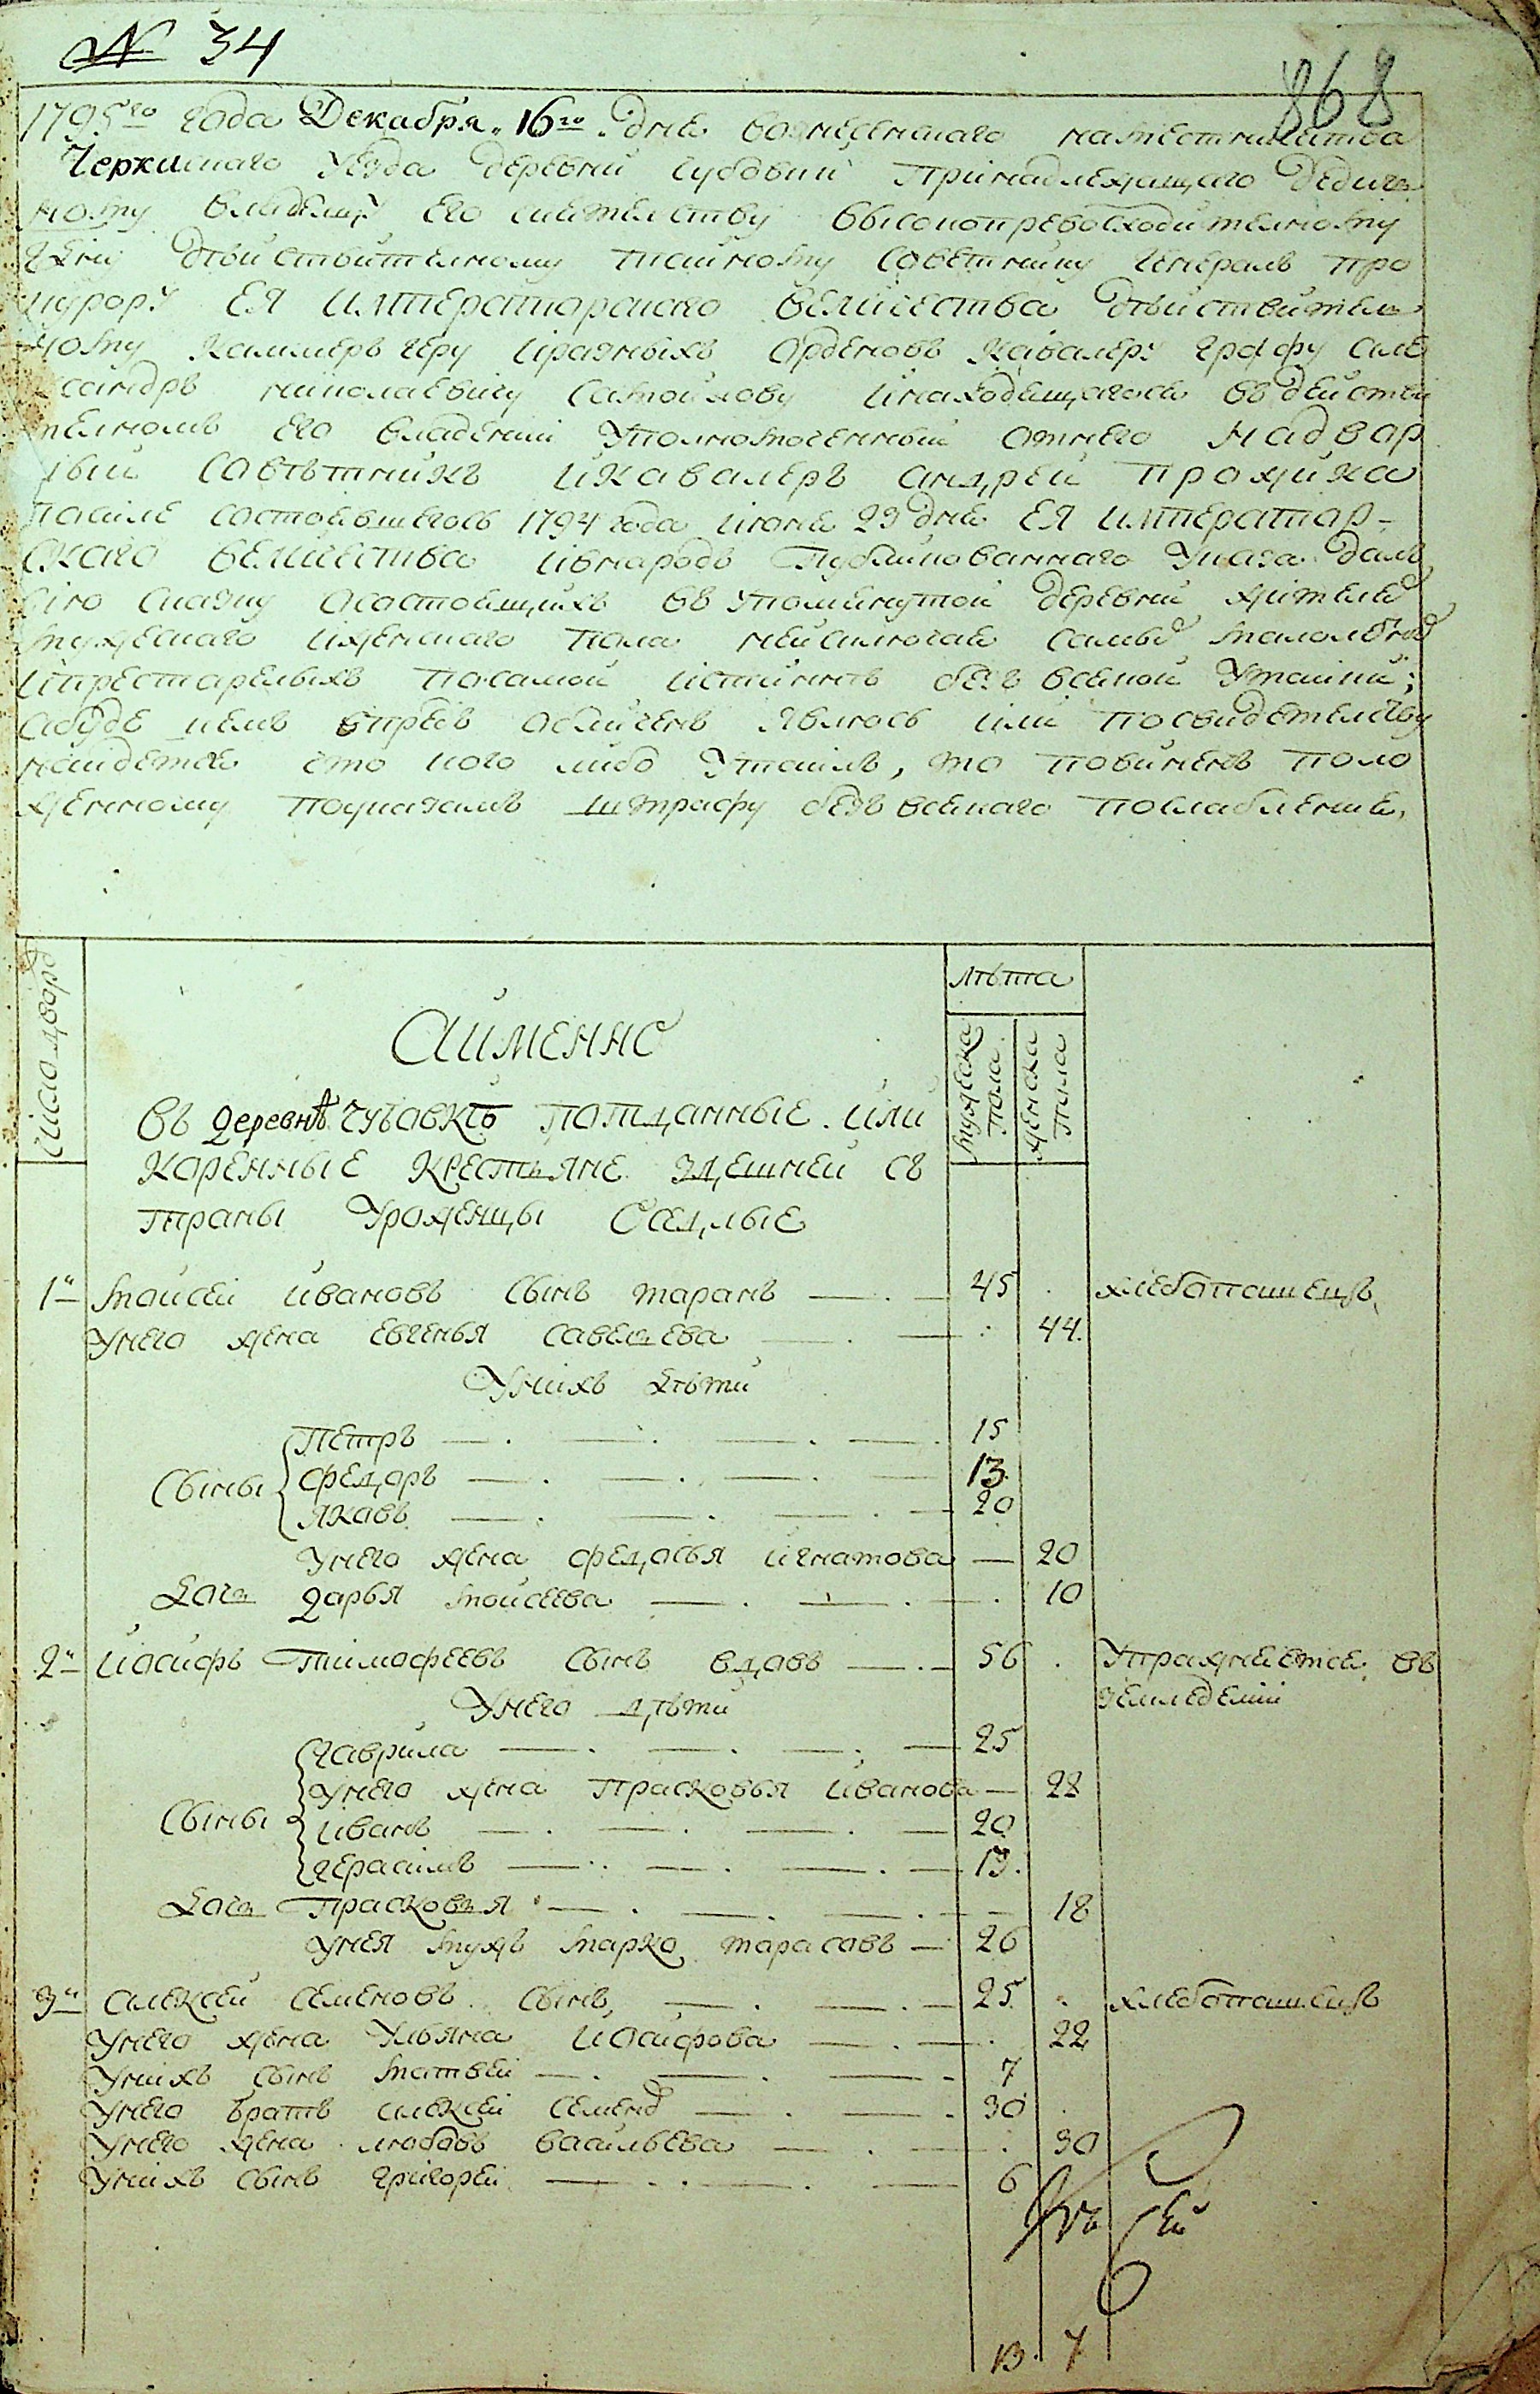 № 34
868
1795го года Декабря 16го дня вознесенскаго наместничества
Черкискаго уезда деревни чубовки принадлежащаго Дедич
ному владелцу его сиятелству высокопревосходителному
гдну дѣйствителному тайному советнику генералъ про
курору ЕЯ императорскаго величества дѣйствител
ному каммеръ геру иразныхъ орденовъ кавалеру графу але
ксандръ николаевичу самойлову инаходящагося въ действи
телномъ его владении уполномоченный отнего надвор
ный совѣтникъ икавалеръ андрей прожика
посиле состоявшегося 1794 года июня 23 дня ЕЯ император-
скаго величества ивнародъ публикованнаго указа далъ
сию сказку осостоящихъ въ упомянутой деревни жителей
мужескаго иженскаго пола
ипрестарелыхъ посамой истиннѣ безъ всякой утайки;
абуде кемъ впредь обличенъ явлюсь или посвидетелству
найдется что кого либо утаилъ, то повиненъ поло
женному поуказамъ штрафу безъ всякаго послабления.
Число дворо
лѣта
мужеска пола
женска пола
Аименно
Въ деревнѣ чубовкѣ подданные или
коренные крестьяне здешней с
траны уроженцы оседлые
1й моисей ивановъ сынъ таранъ 45 хлебопашецъ
унего жена евгенья савельева 44
унихъ дѣти
Сыны
петръ 15
федоръ 13
яковъ 20
унего жена федосья игнатова 20
дочь дарья моисеева 10
2й иосифъ тимофеевъ сынъ вдовъ 56 упражняется въ
земледелии
унего дѣти
Сыны
гаврила 25
унего жена прасковья иванова 22
иванъ 20
герасимъ 13
дочь прасковья 18
унея мужъ марко тарасовъ 26
3й алексей семеновъ сынъ 25 хлебопашецъ
унего жена ульяна иосифова 22
унихъ сынъ матвей 7
унего братъ алексей семено 30
унего жена любовь васильева 30
унихъ сынъ григорей 6
13 7